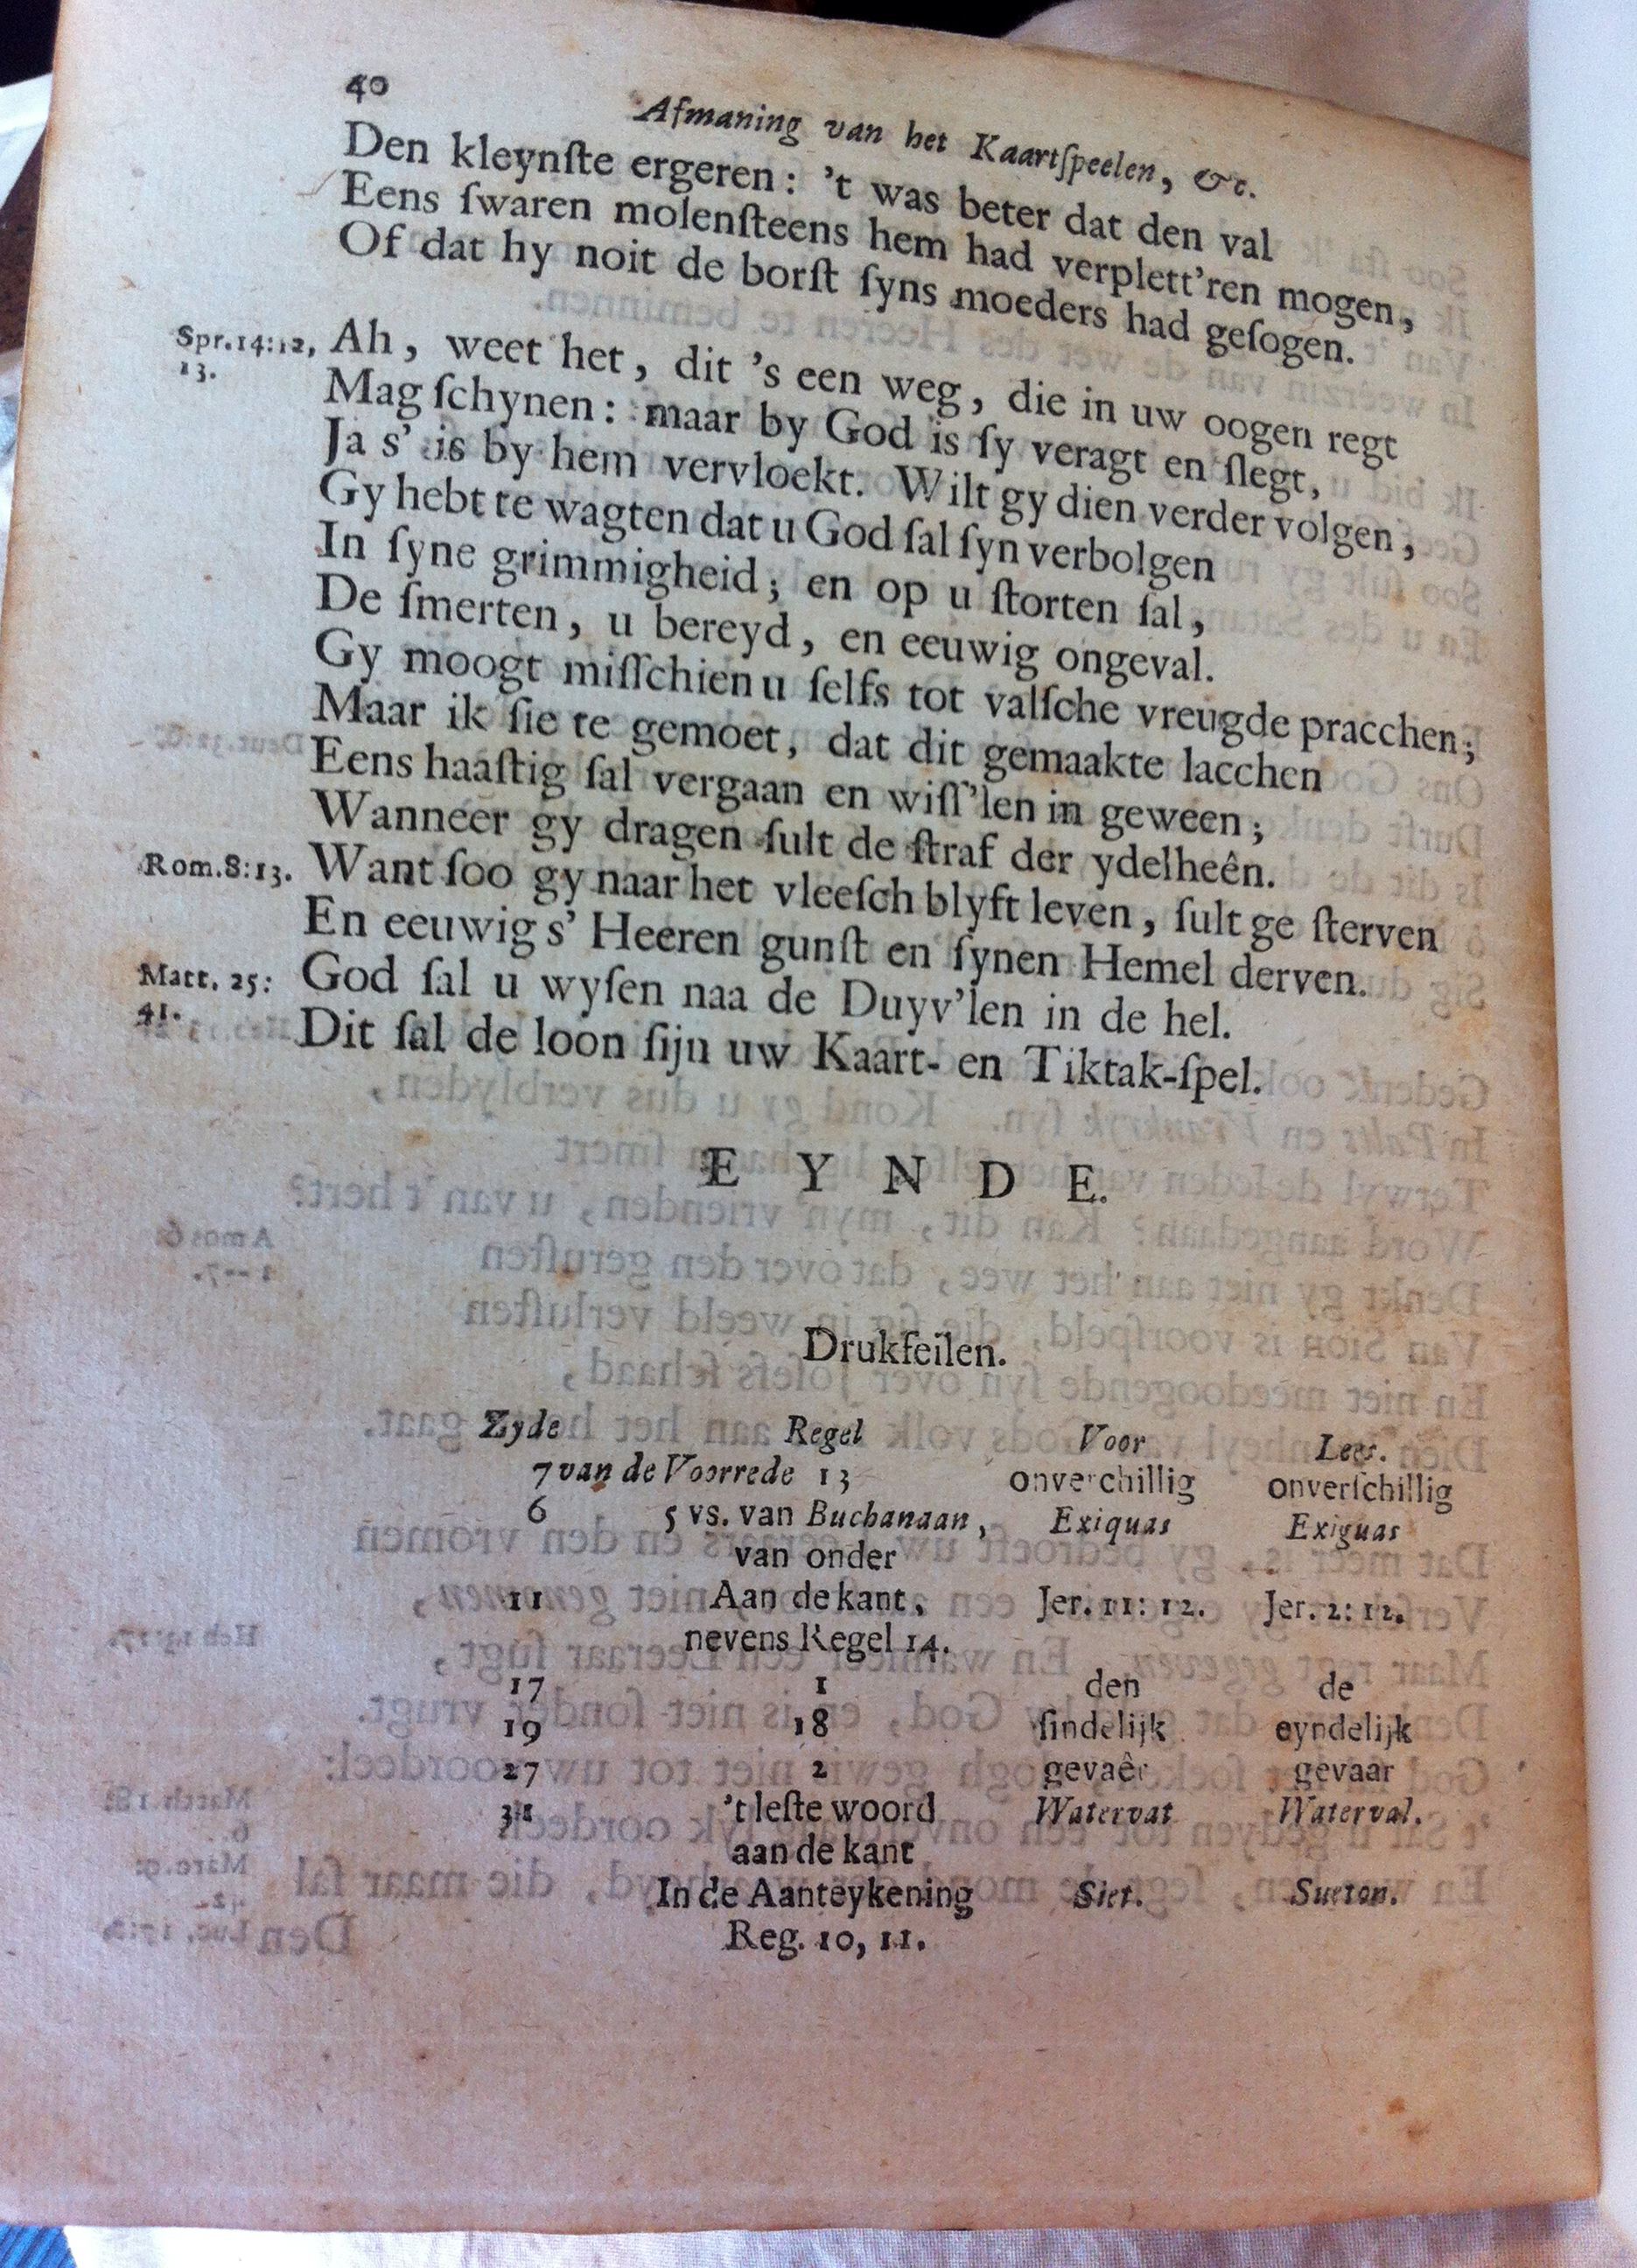 40
Afmaning van het Kaartſpeelen, &c.
Den kleynſte ergeren: 't was beter dat den val
Eens ſwaren molenſteens hem had verplett'ren mogen,
Of dat hy noit de borſt ſyns moeders had geſogen.
Spr. 14:12, Ah, weet het, dit 's een weg, die in uw oogen regt
13.
Mag ſchynen: maar by God is ſy veragt en ſlegt,
Ja s' is by hem vervloekt. Wilt gy dien verder volgen,
Gy hebt te wagten dat u God ſal ſyn verbolgen
In ſyne grimmigheid; en op u ſtorten ſal,
De ſmerten, u bereyd, en eeuwig ongeval.
Gy moogt miſſchien u ſelfs tot valſche vreugde pracchen;
Maar ik ſie te gemoet, dat dit gemaakte lacchen
Eens haaſtig ſal vergaan en wiſſ'len in geween;
Wanneer gy dragen ſult de ſtraf der ydelheên.
Rom. 8:13. Want ſoo gy naar het vleeſch blyft leven, ſult ge ſterven
En eeuwig s' Heeren gunſt en ſynen Hemel derven.
Matt. 25: God ſal u wyſen naa de Duyv'len in de hel.
41.
Dit ſal de loon ſijn uw Kaart- en Tiktak-ſpel.
EYNDE.
Drukfeilen.
Zyde Regel Voor Lees.
7 van de Voorrede 13 onverchillig onverſchillig
6 5 vs. van Buchanaan, Exiquas Exiguas
van onder
11 Aan de kant, Jer. 11: 12. Jer. 2: 12.
nevens Regel 14.
17 1 den de
19 18 ſindelijk eyndelijk
27 2 gevaêr gevaar
31 't leſte woord Watervat Waterval.
aan de kant
In de Aanteykening Siet. Sueton.
Reg. 10, 11.